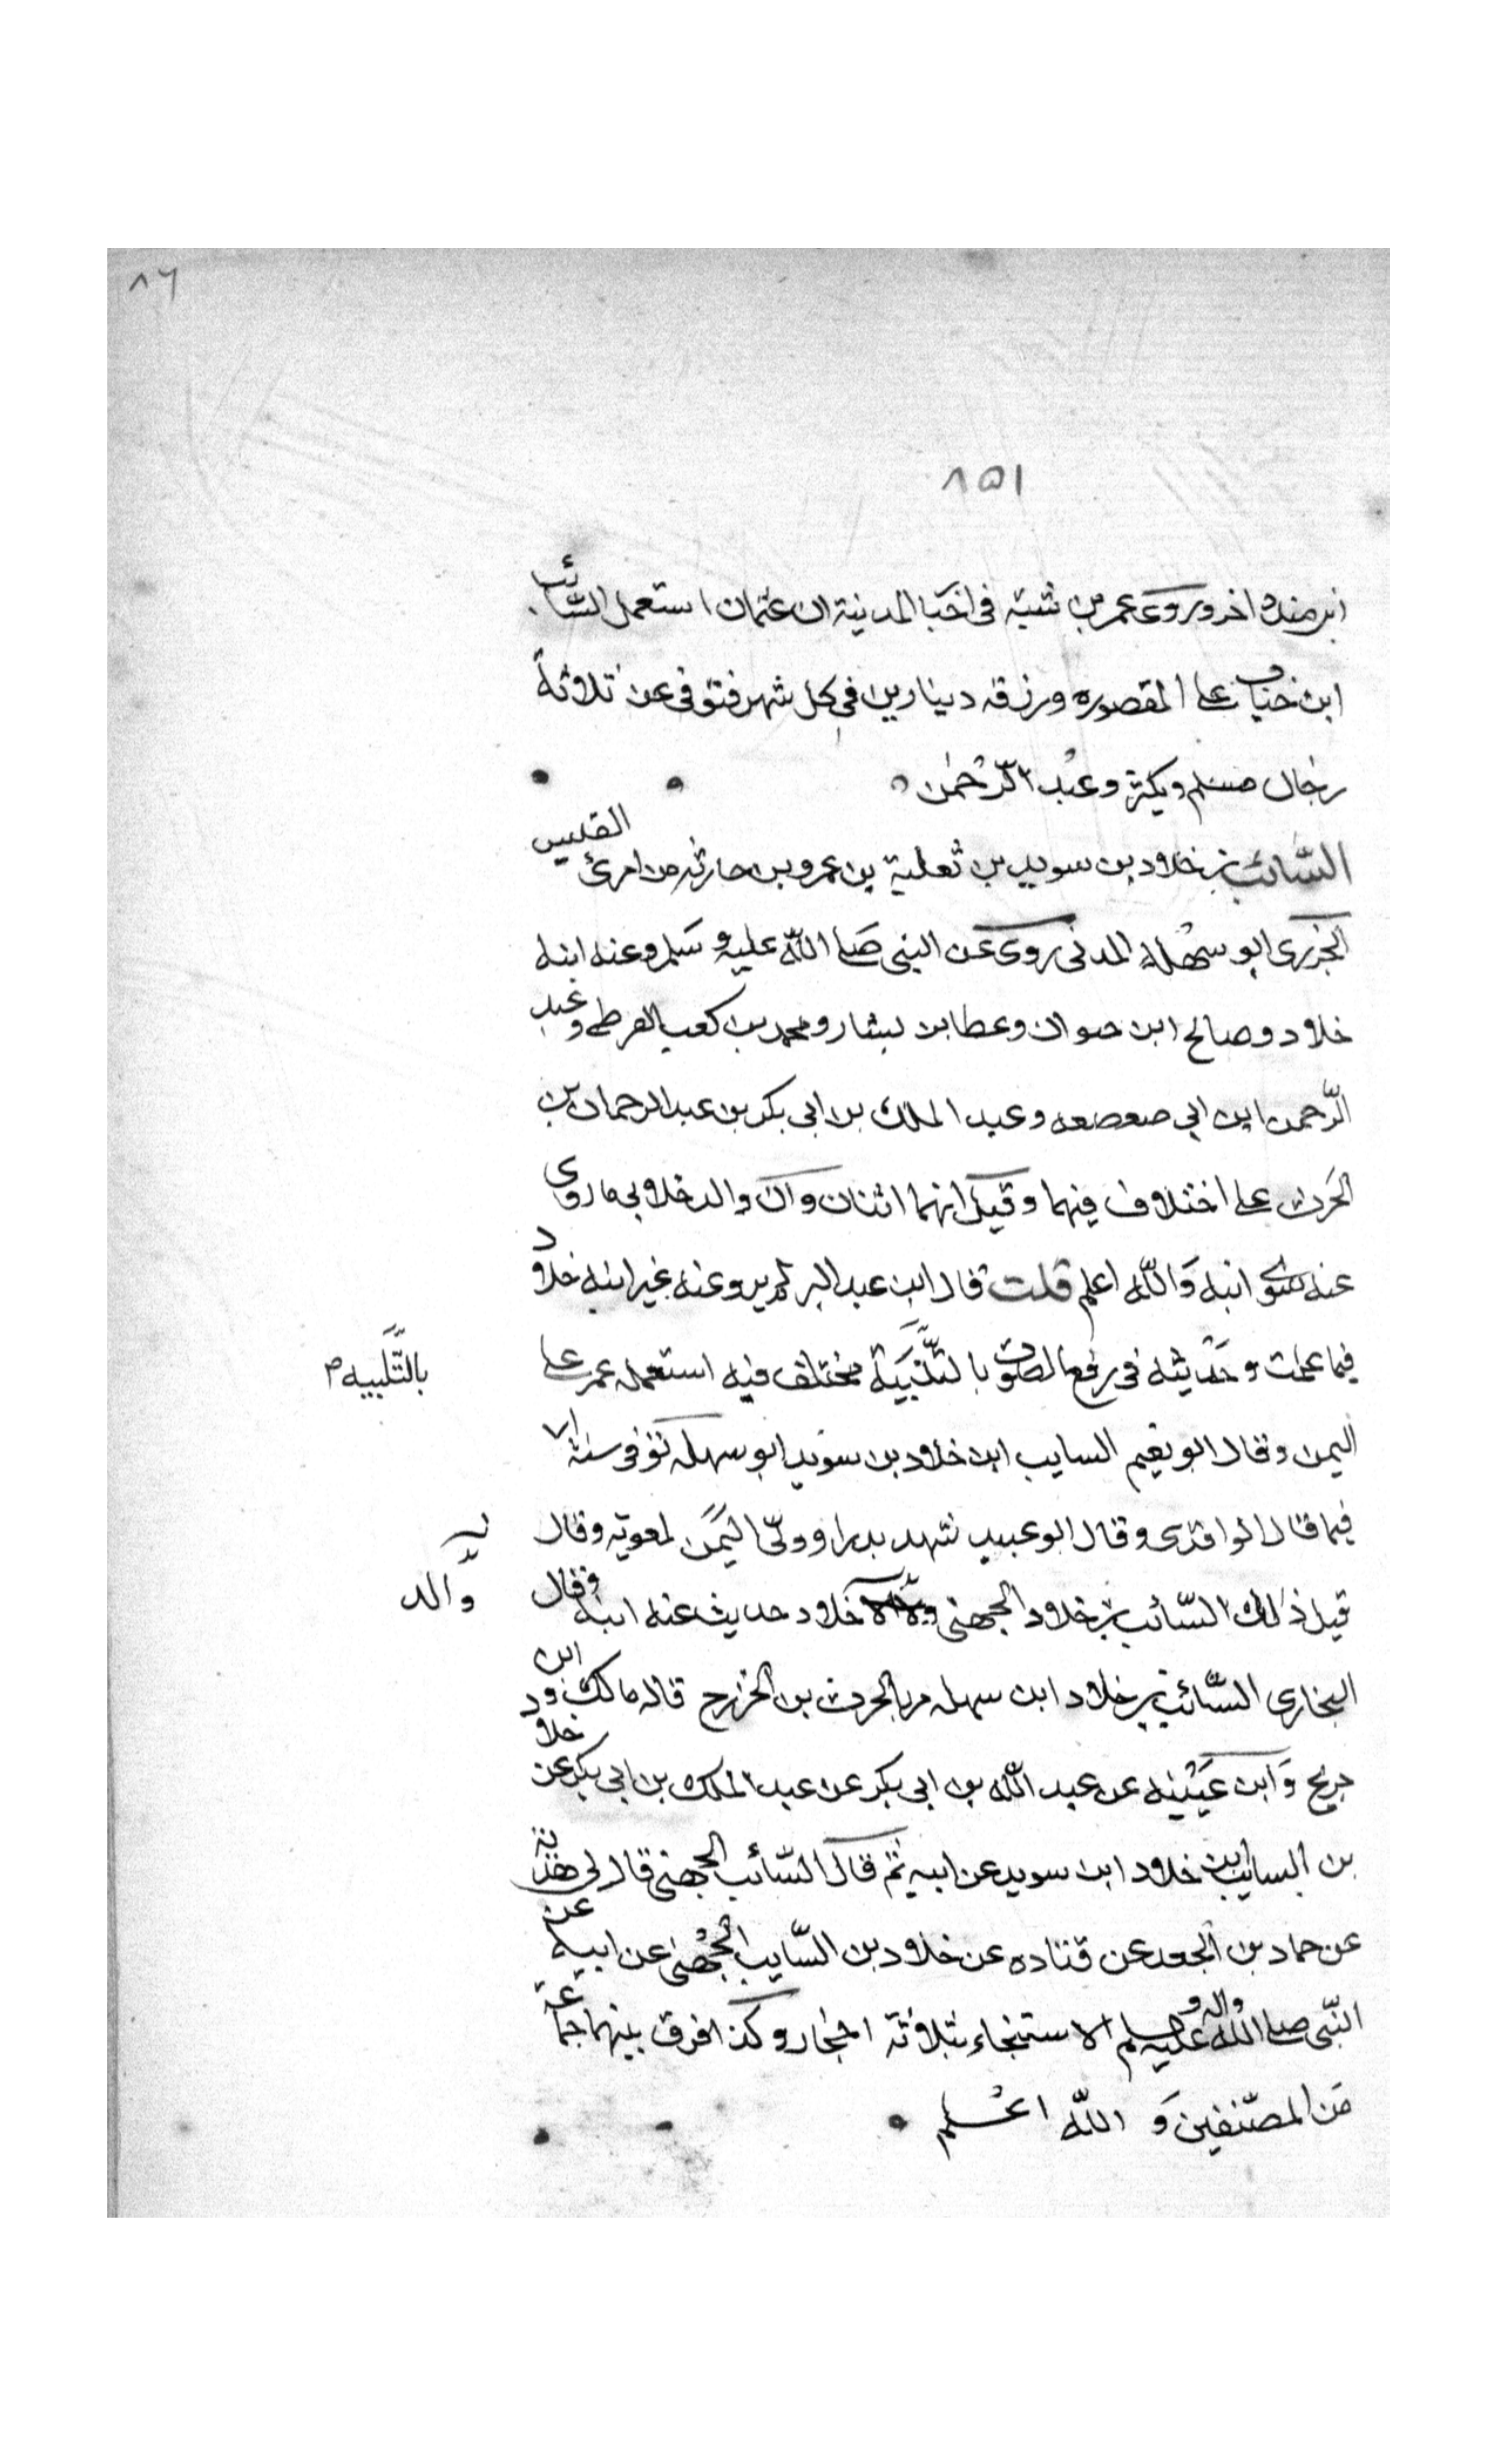 ٨٦
٨٥١
ابن منده اخر وروى عمر بن شبة فى اخبا المدينة ان عثمان استعمل السّائب
ابن خباب على المقصوره ورزقه دينارين فى كل شهر فتوفى عن ثلاثة
رجال مسلم وبكير وعبد الرّحمٰن
السّائب بن خلاد بن سويد بن ثعلبة بن عمرو بن حارثه بن امرئ القيس
الخزرجى ابو سهلة المدنى روى عن النبى صلى اللّه عليه وسلم وعنه ابنه
خلاد وصالح ابن حيوان وعطا بن يسار ومحمد بن كعب القرظى وعبد
الرّحمن ابن ابي صعصعه وعبد الملك بن ابى بكر بن عبد الرحمان بن
الحرث على اختلاف فيهما وقيل انهما اثنان وان والد خلاد بى ما روى
عنه سوى ابنه وَاللّه اعلم قلت قال ابن عبد البر لم يرو عنه غير ابنه خلاد
فيما علمت وحديثه فى رفع الصوت بالتلبية مختلف فيه استعمله عمر على
بالتَّلبيه
اليمن وقال ابو نعيم السايب ابن خلاد بن سويد ابو سهله توفى سنة ٧١
فيما قال الواقدى وقال ابو عبيد شهد بدرا وولى اليَمَن لمعوية وقال
قيل ذلك السّائب بن خلاد الجهنى خلاد حديث عنه ابنه وقال
والد
البخارى السّائب بن خلاد ابن سهله من بالحرث بن الخزرج قاله مالك وابن
جريج وَابن عيَيْنه عن عبد اللّه بن ابى بكر عن عبد الملك بن ابى بكر عن خلاد
بن السايب ابن خلاد ابن سويد عن ابيه ثم قال السّائب الجهنى قال لى هدبة
عن حماد بن الجعد عن قتاده عن خلاد بن السّايب الجُهنى عن ابيه عن
النّبى صلى اللّه عليه واله وسلم الاستنجاء بثلاثة احجار وكذا فرق بينهما جماعة
من المصنّفين وَاللّه اعلم